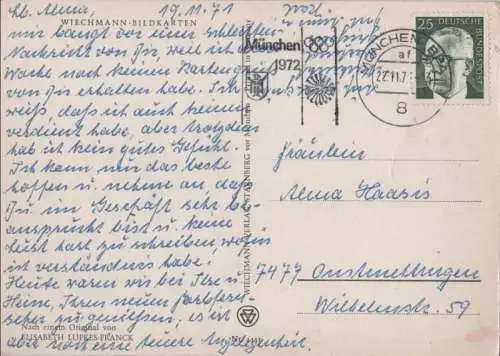 Lb. Alma, 19.11.71
WIECHMANN-BILDKARTEN
mir bangt vor einer schlechten
Nachricht von Dir weil ich diese
Woche noch keinen Kartengruß
von Dir erhalten habe. Ich
weiß, daß ich auch keinen
verdient habe, aber trotzdem
hab ich kein gutes Gefühl.
Ich kann nur das beste
hoffen u. nehme an, daß
Du im Geschäft sehr be-
ansprucht bist u. keine
Lust hast zu schreiben, was
ich verständnis habe.
Heute waren wir bei Ilse u.
Heinz, Ihren neuen Farbfern-
seher zu genießen, es ist
aber noch eine teuere Angelegenheit.
Nach einem Original von
ELISABETH LÜPKES-FRANCK
noch
WIECHMANN VERLAG STARNBERG vor München
München
1972
MÜNCHEN
af
22.11.71
8
25
DEUTSCHE
BUNDESPOST
Fräulein
Alma Haasis
7477 Onstmettingen
Wilhelmstr. 59